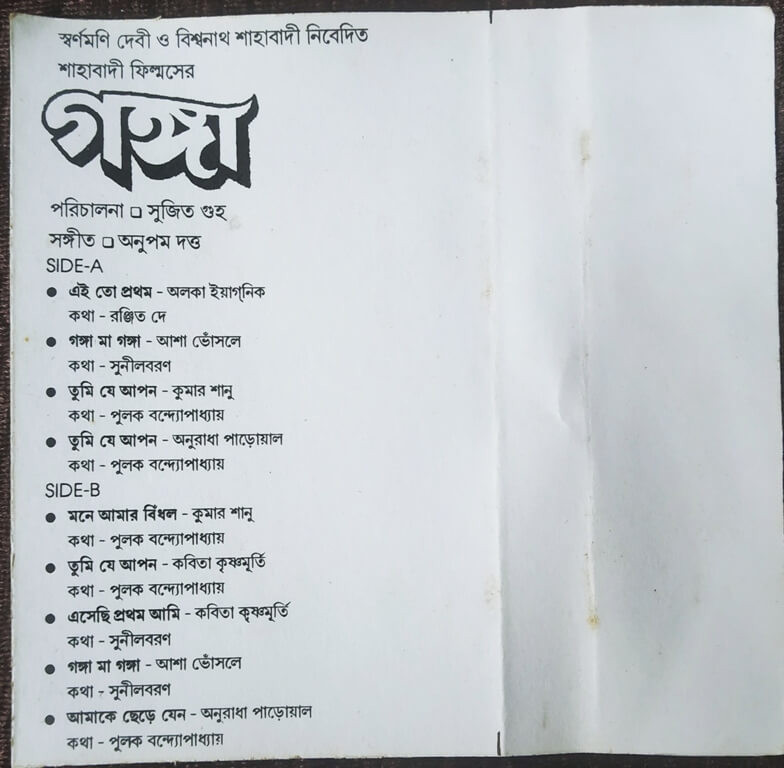 স্বর্ণমণি দেবী ও বিশ্বনাথ শাহাবাদী নিবেদিত
শাহাবাদী ফিল্মসের
গঙ্গা
পরিচালনা □ সুজিত গুহ
সঙ্গীত □ অনুপম দত্ত
SIDE-A
● এই তো প্রথম - অলকা ইয়াগ্‌নিক
কথা - রঞ্জিত দে
● গঙ্গা মা গঙ্গা - আশা ভোঁসলে
কথা - সুনীলবরণ
● তুমি যে আপন - কুমার শানু
কথা - পুলক বন্দ্যোপাধ্যায়
● তুমি যে আপন - অনুরাধা পাড়োয়াল
কথা - পুলক বন্দ্যোপাধ্যায়
SIDE-B
● মনে আমার বিঁধল - কুমার শানু
কথা - পুলক বন্দ্যোপাধ্যায়
● তুমি যে আপন - কবিতা কৃষ্ণমূর্তি
কথা - পুলক বন্দ্যোপাধ্যায়
● এসেছি প্রথম আমি - কবিতা কৃষ্ণমূর্তি
কথা - সুনীলবরণ
● গঙ্গা মা গঙ্গা - আশা ভোঁসলে
কথা - সুনীলবরণ
● আমাকে ছেড়ে যেন - অনুরাধা পাড়োয়াল
কথা - পুলক বন্দ্যোপাধ্যায়